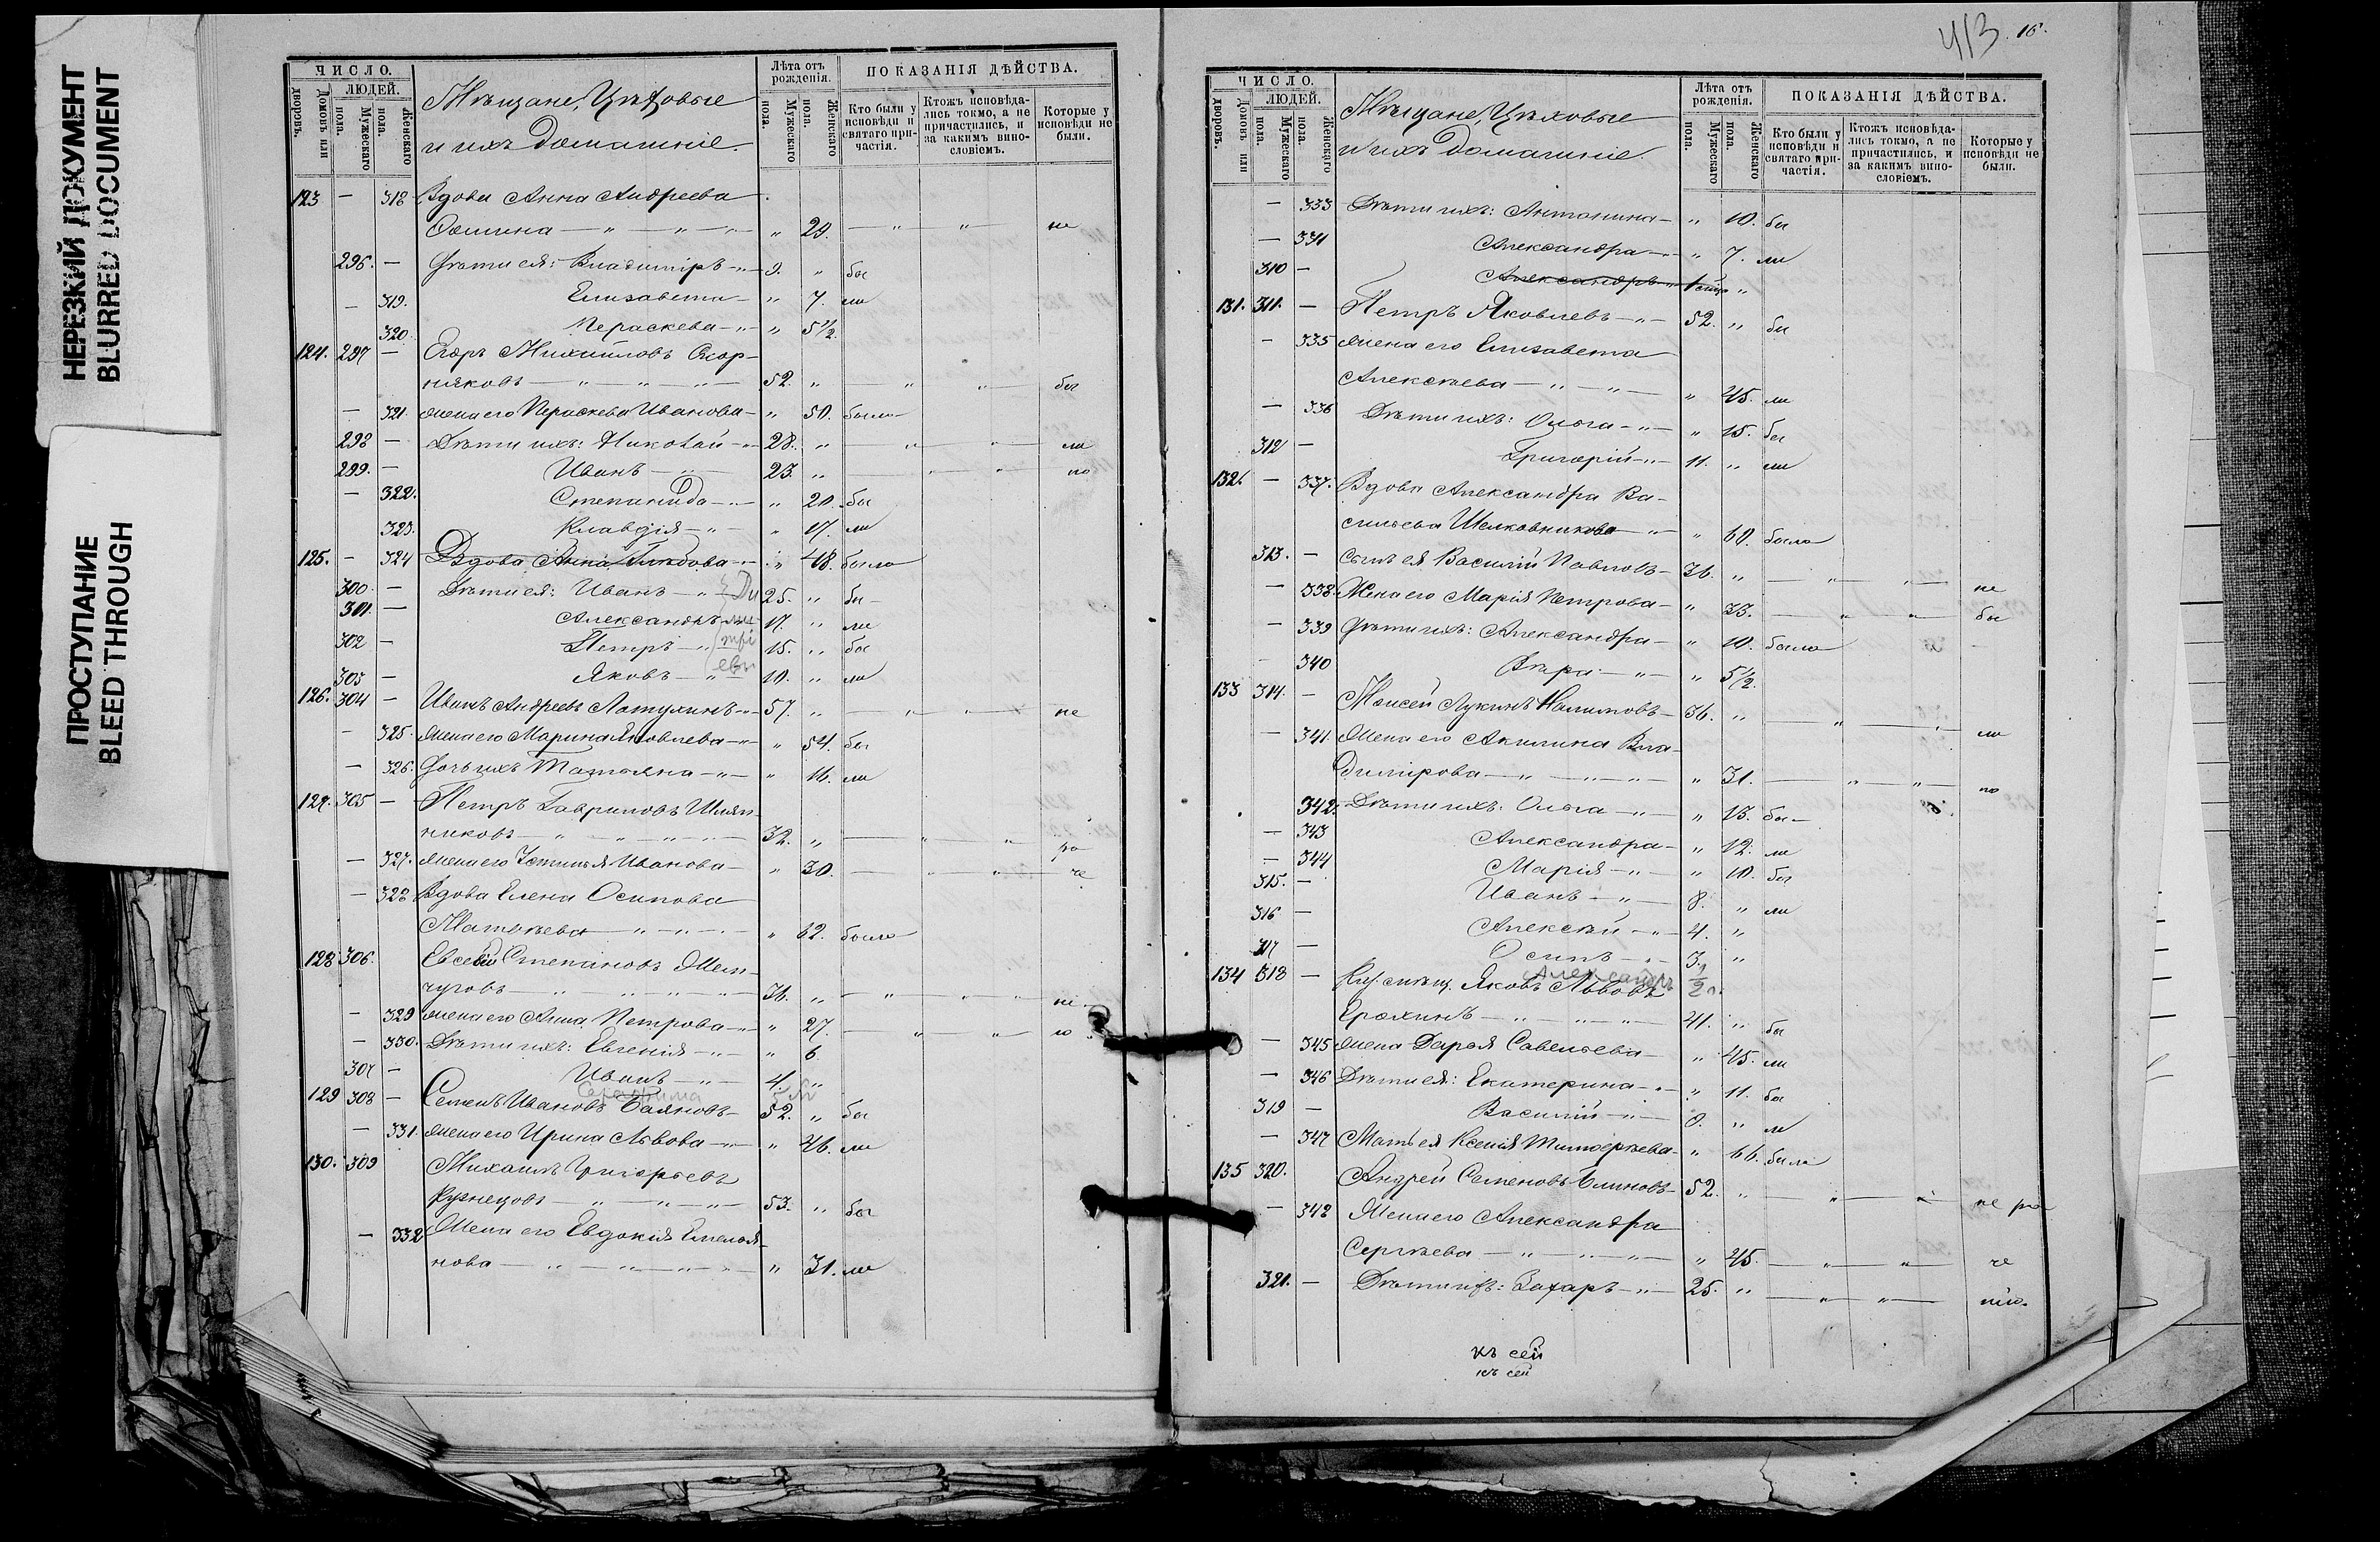 НЕРЕЗКИЙ ДОКУМЕНТ
BLURRED DOCUMENT
ПРОСТУПАНИЕ
BLEED THROUGH
ЧИСЛО.
Домовъ или дворовъ.
ЛЮДЕЙ.
Мужескаго пола.
Женскаго пола.
Мѣщане, Цеховые
и ихъ домашніе.
Лѣта отъ рожденія.
Мужескаго пола.
Женскаго пола.
ПОКАЗАНІЯ ДѢЙСТВА.
Кто были у исповѣди и святаго причастія.
Ктожъ исповѣда-лись токмо, а не причастились, и за какимъ вино-словіемъ.
Которые у исповѣди не были.
123 — 318 Вдова Анна Андреева
" 29. — " — " — не
296. — Дѣти ея: Владиміръ — " — 9. " бы
— 319. Елисавета — " 7. ли
320. Параскева — " — " 5 1/2
124. 297 — Егоръ Михайловъ
няковъ — " — " — " — 52. " — " — " — бы
— 321. жена его Параскева Иванова — " 50. была
298 — Дѣти ихъ: Николай — " — 28. " — " — " — ли
299. — Иванъ — " — 23. " — " — " — по
— 322. Степанида — " — " 20. бы
323. Клавдія — " — " 17. ли
125. — 324 Вдова Анна Глѣбова — " — " 48. была
300. — Дѣти ея: Иванъ — " — 25. " бы
301. — Александръ — 17. " ли
302 — Петръ — " — 15. " бы
303 — Яковъ — " — 10. " ли
Дмитріевы
126. 304 — Иванъ Андреевъ Латухинъ — " — 57. " — " — " — не
— 325. жена его Марина Яковлева — " — " 54. бы
— 326. Дочь ихъ Татьяна — " — " 16. ли
127. 305 — Петръ Гавриловъ Шляп-
никовъ — " — " — " — 32. " — " — " — ро
— 327. жена его Устинья Иванова — " 30. — " — " — че
— 328 Вдова Елена Осипова
Матвѣева — " — " — " 62. была
128 306. Евсевій Степановъ Жем-
чуговъ — " — " — " — 36. " — " — " — не
— 329 жена его Анна Петрова — " — " 27. — " — " —
— 330. Дѣти ихъ: Евгенія — " — " 6
307 — Иванъ — " — 4. "
Серафима
129 308 — Семенъ Ивановъ Баяновъ — 52. " бы
— 331. жена его Ирина Львова — " — " 46. ли
130. 309 Михаилъ Григорьевъ
Кузнецовъ — " — " — " — 53. " бы
— 332 Жена его Евдокія Емелья-
нова — " — " — " — " 31. ли
413. 16.
ЧИСЛО.
Домовъ или дворовъ.
ЛЮДЕЙ.
Мужескаго пола.
Женскаго пола.
Мѣщане, Цеховые
и ихъ домашніе.
Лѣта отъ рожденія.
Мужескаго пола.
Женскаго пола.
ПОКАЗАНІЯ ДѢЙСТВА.
Кто были у исповѣди и святаго при-частія.
Ктожъ исповѣда-лись токмо, а не причастились, и за какимъ вино-словіемъ.
Которые у исповѣди не были.
— 333 Дѣти ихъ: Антонина — " 10. бы
— 334 Александра — " — " 7. ли
310 — Александръ — "
131. 311. — Петръ Яковлевъ — " — 52. " бы
— 335 жена его Елисавета
Алексѣева — " — " — " 45. ли
— 336 Дѣти ихъ: Ольга — " — " 15. бы
312 — Григорій — " — 11. " ли
132. — 337. Вдова Александра Ва-
сильева Шелковникова — " — " 60. была
313. — Сынъ ея Василій Павловъ — 36. " — " — " — не
— 338. Жена его Марія Петрова — " 33. — " — " — бы
— 339 Дѣти ихъ: Александра — " 10. была
— 340 Вѣра — " — " 5 1/2.
133 314. — Моисей Лукинъ Налимовъ — 36. " — " — " — ли
— 341. Жена его Акилина Вла-
димірова — " — " — " — " 31. — " — " — по
342. Дѣти ихъ: Ольга — " — " 13. бы
— 343 Александра — " 12. ли
— 344 Марія — " — " 10. бы
315. — Иванъ — " — 8. " ли
316 — Алексѣй — " — 4. "
317 — Осипъ — " — 3. "
Александръ 1/2
134 318 — Яковъ Львовъ
Ерохинъ — " — " — " — 41. " бы
— 345 жена Дарья Савельева — " 45. ли
— 346 Дѣти ея: Екатерина — " — " 11. бы
319 — Василій — " — 8. " ли
— 347 Мать ея Ксенія Тимоѳеева — " 66. была
135 320. Андрей Семеновъ Блиновъ — 52. " — " — " — не ро
— 348 Жена его Александра
Сергѣева — " — " — " — " 45. — " — " — че
321. — Дѣти ихъ: Захаръ — " — 25. " — " — " — нію.
къ сей
къ сей